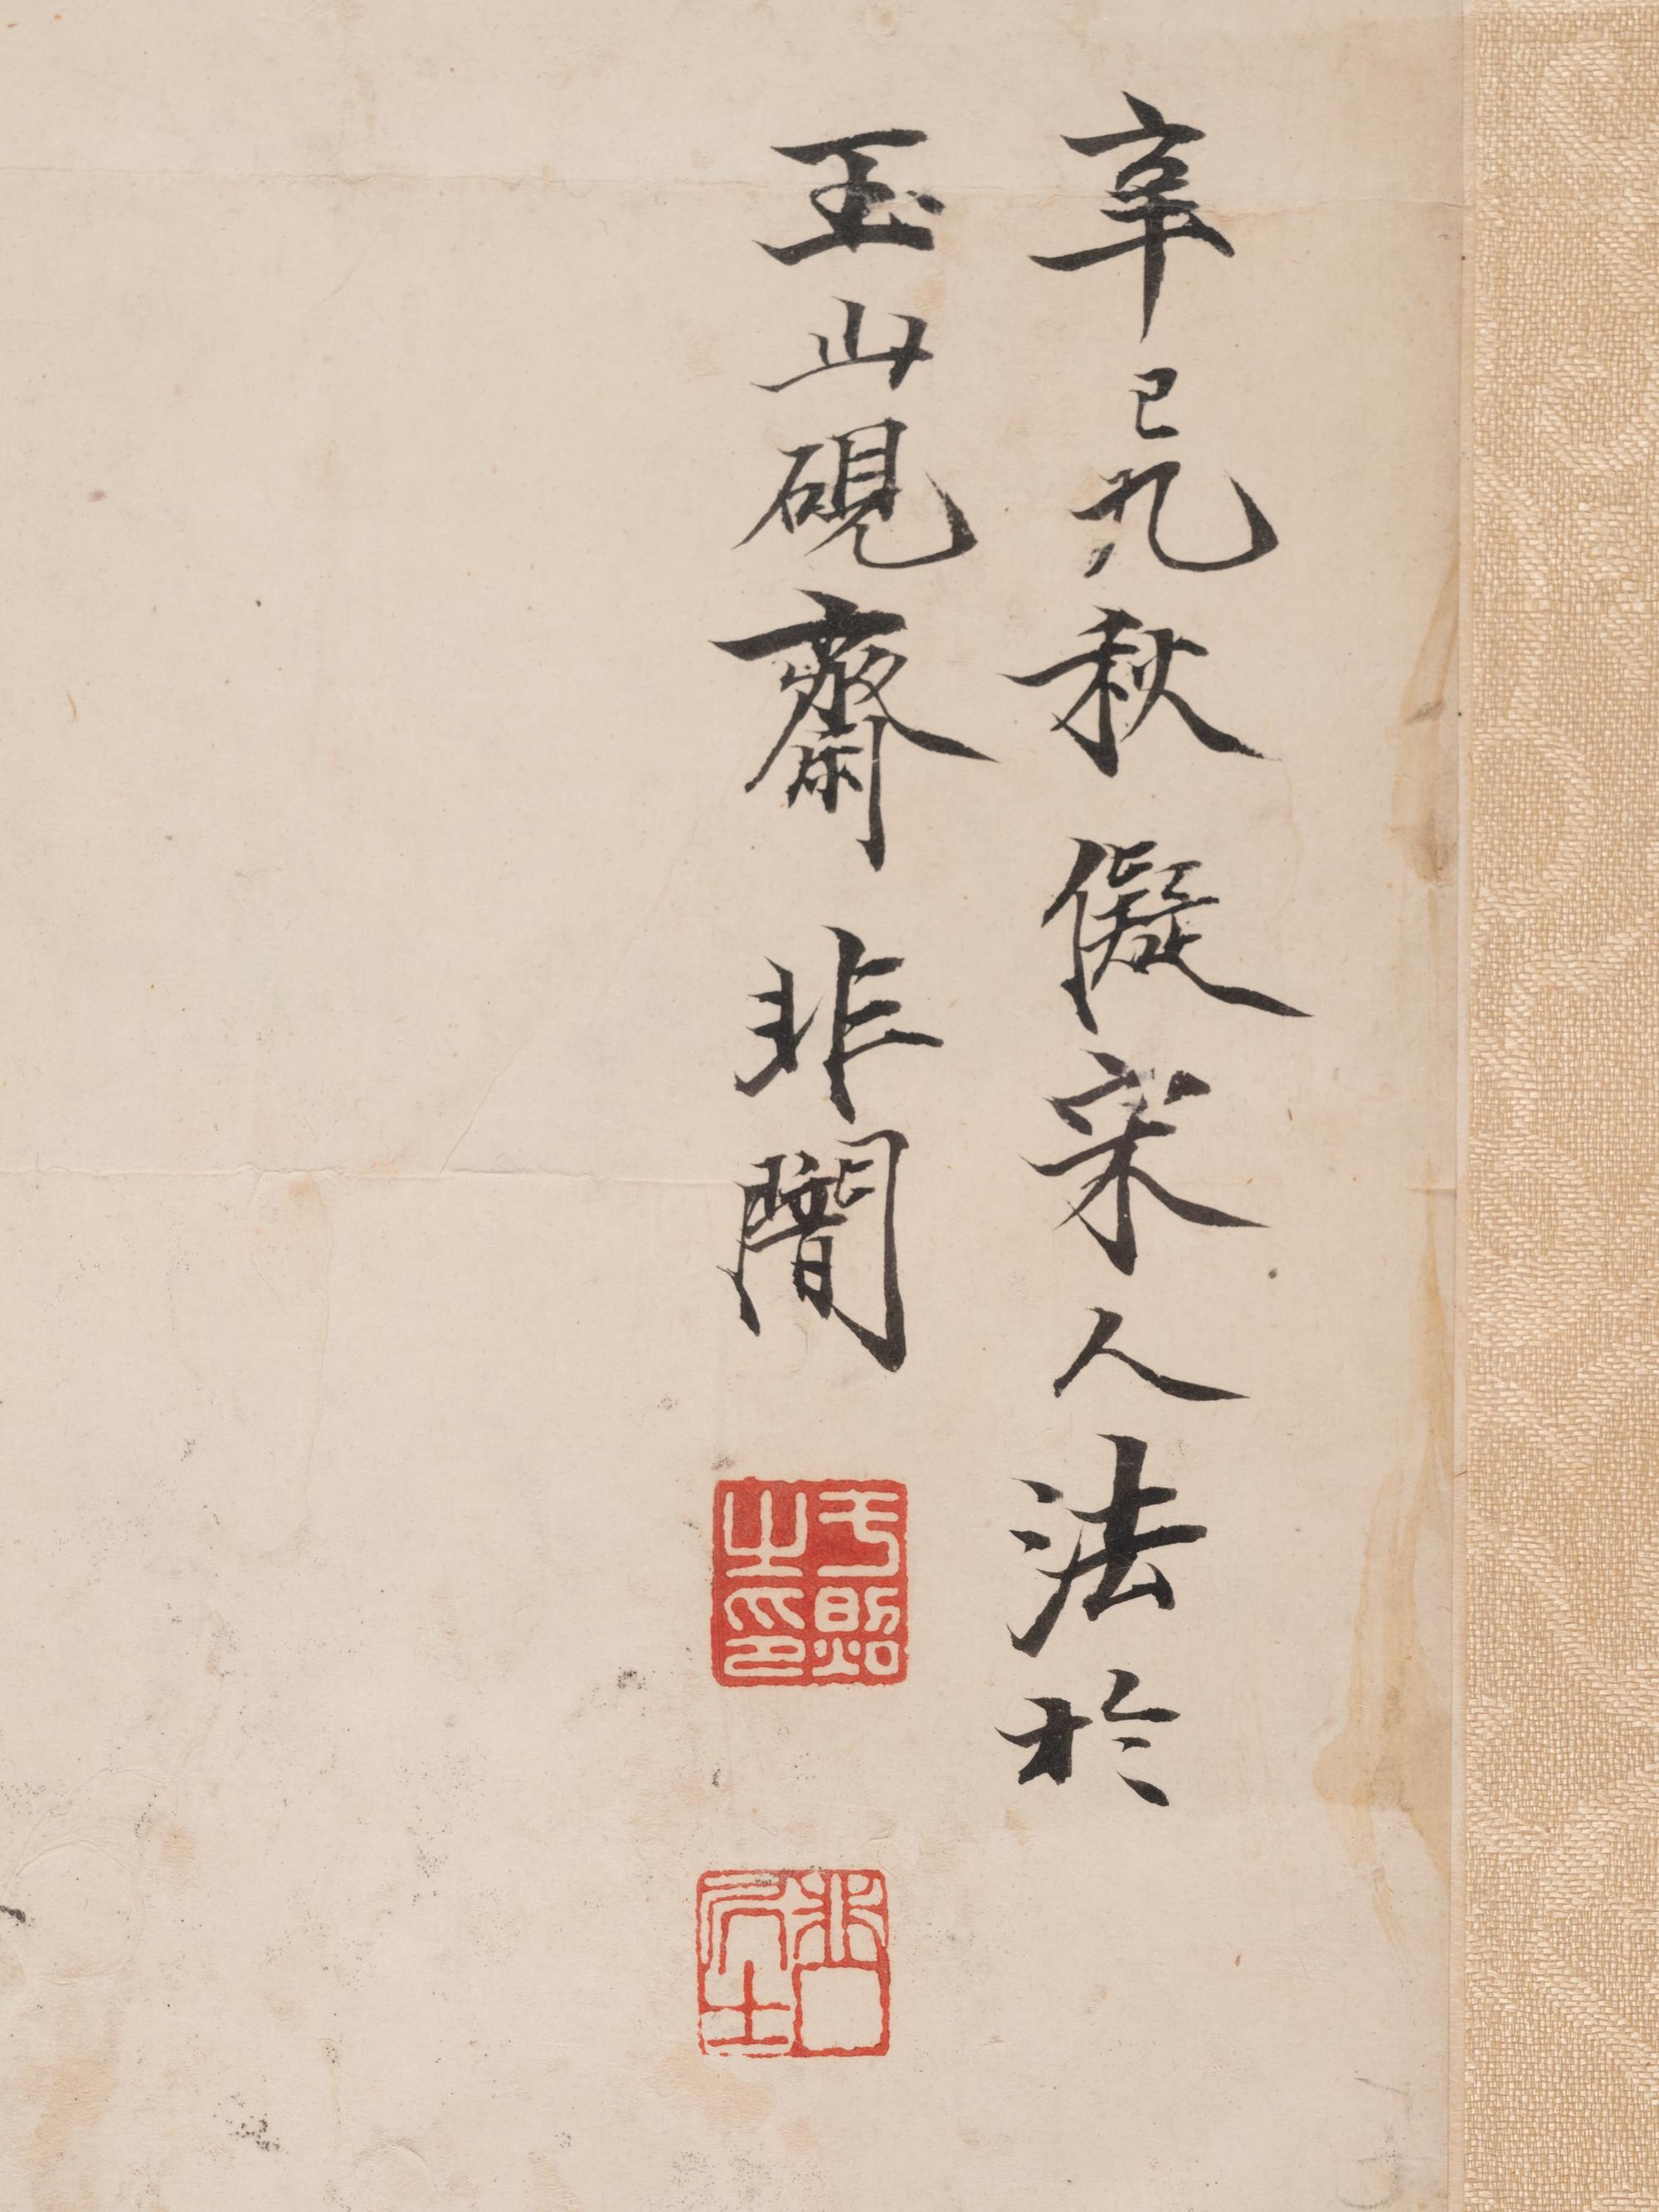 辛巳九秋儗宋人法於
玉山硯齋非闇
于照之印
非厂居士